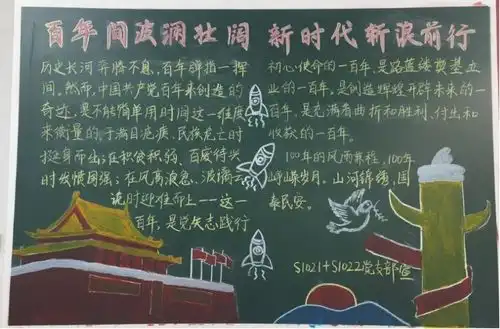 百年间波澜壮阔 新时代新浪前行
历史长河奔腾不息，百年弹指一挥
间。然而，中国共产党百年来创造的
奇迹，是不能简单用时间这一维度
来衡量的，于满目疮痍、民族危亡时
挺身而出；在积贫积弱、百废待兴
时发愤图强；在风高浪急、波谲云
诡时迎难而上——这一
百年，是党矢志践行
初心使命的一百年，是路蓝缕奠基立
业的一百年，是创造辉煌开辟未来的一
百年，是充满着曲折和胜利、付出和
收获的一百年。
100年的风雨兼程，100年
峥嵘岁月。山河锦绣，国
泰民安。
S1021+S1022党支部宣